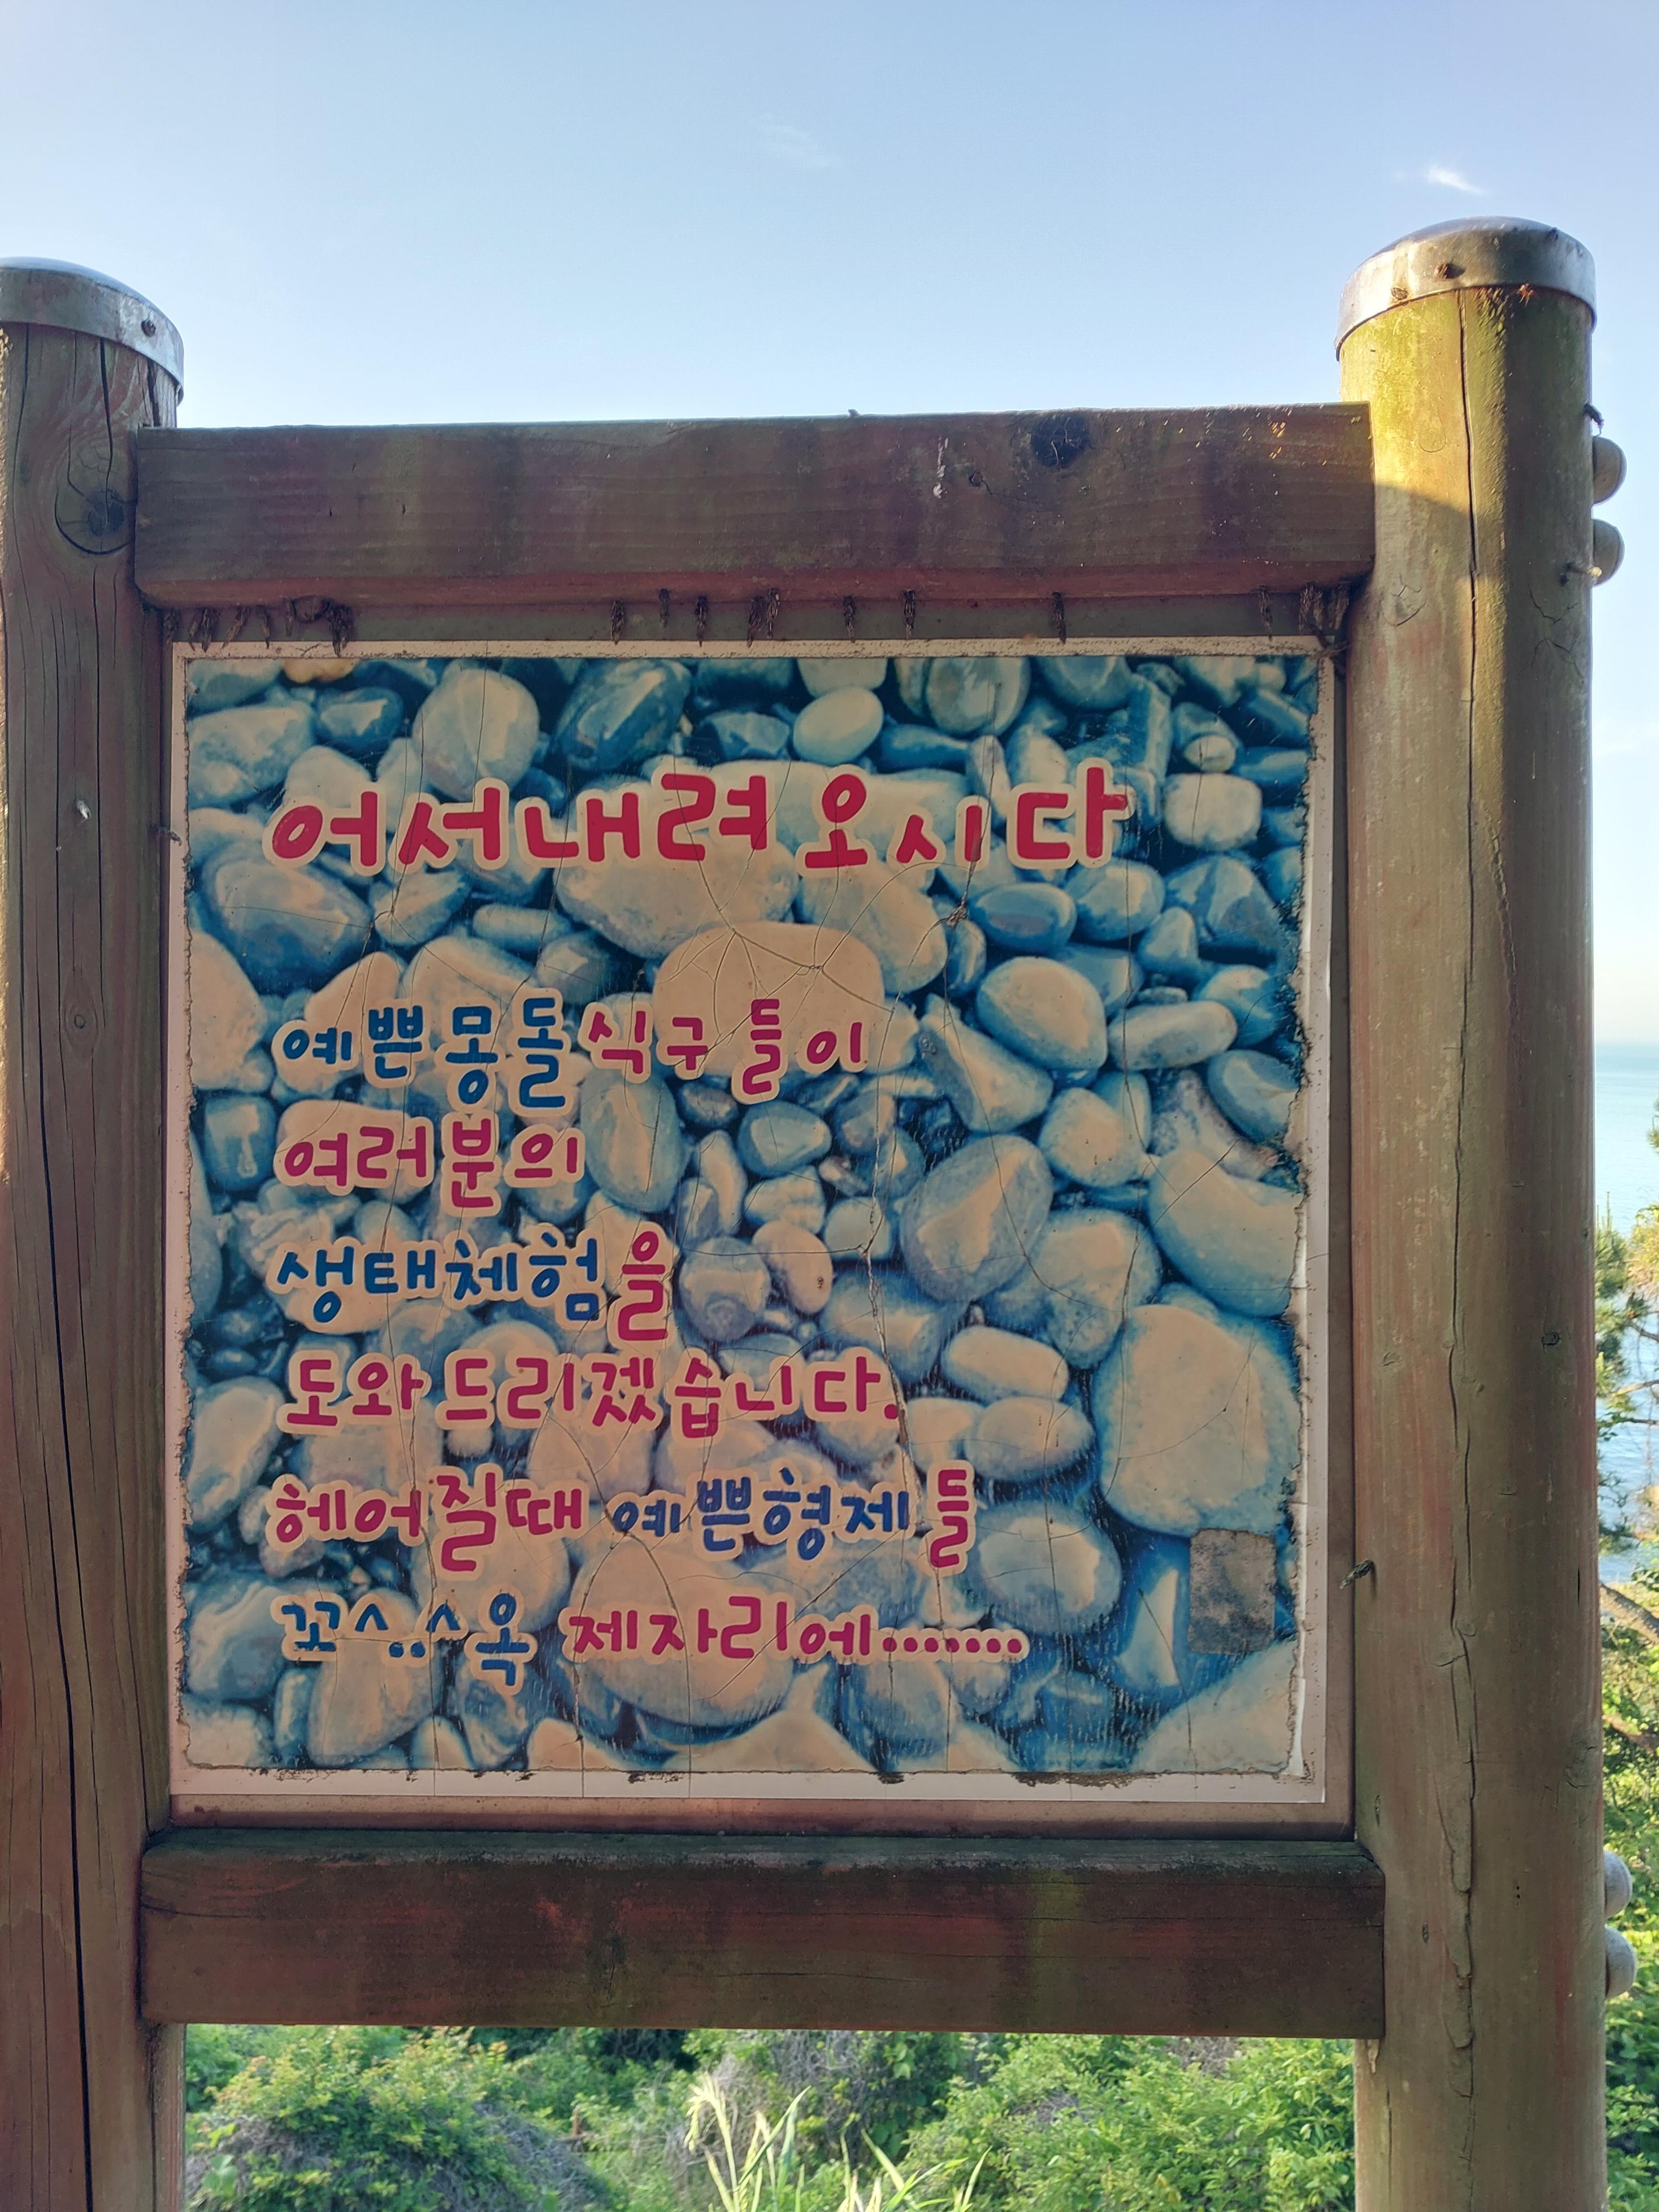 어서내려 오시다
예쁜몽돌식구들이
여러분의
생태체험을
도와드리겠습니다.
헤어질때 예쁜형제들
꼬^..^옥 제자리에.......